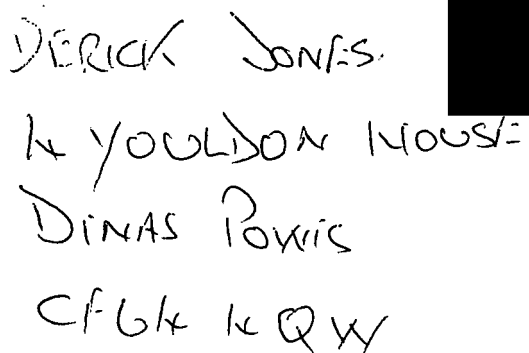 DERICK JONES.
14 YOULDON HOUSE
DINAS POWIS
CF64 4QW